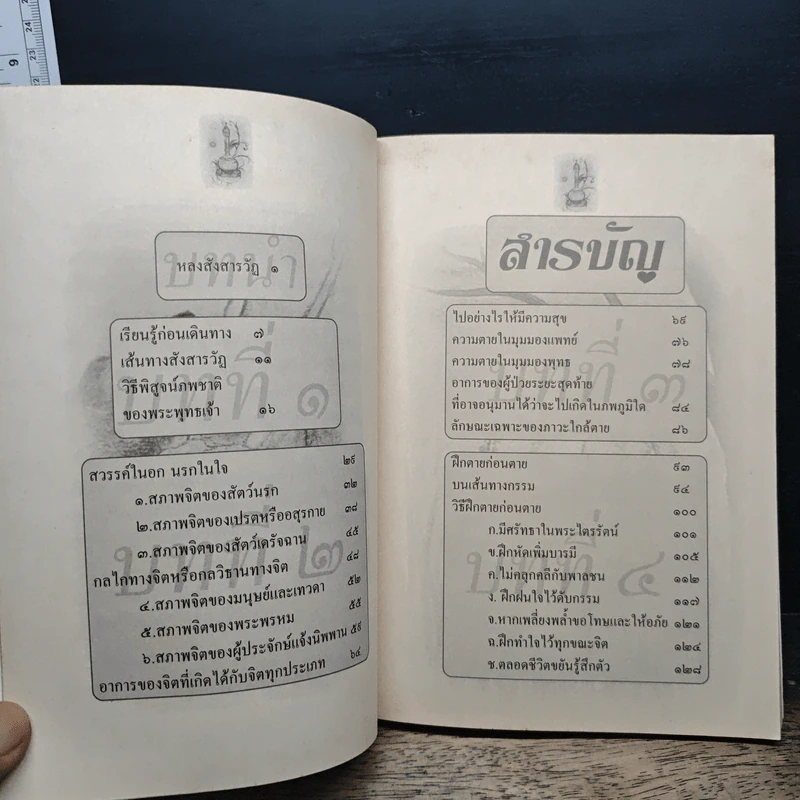 บทนำ
หลงสังสารวัฏ ๑
บทที่ ๑
เรียนรู้ก่อนเดินทาง ๗
เส้นทางสังสารวัฏ ๑๑
วิธีพิสูจน์ภพชาติ
ของพระพุทธเจ้า ๑๖
บทที่ ๒
สวรรค์ในอก นรกในใจ ๒๙
๑.สภาพจิตของสัตว์นรก ๓๒
๒.สภาพจิตของเปรตหรืออสุรกาย ๓๘
๓.สภาพจิตของสัตว์เดรัจฉาน ๔๕
กลไกทางจิตหรือกลวิธานทางจิต ๔๘
๔.สภาพจิตของมนุษย์และเทวดา ๕๒
๕.สภาพจิตของพระพรหม ๕๕
๖.สภาพจิตของผู้ประจักษ์แจ้งนิพพาน ๕๙
อาการของจิตที่เกิดได้กับจิตทุกประเภท ๖๔
สารบัญ
บทที่ ๓
ไปอย่างไรให้มีความสุข ๖๙
ความตายในมุมมองแพทย์ ๗๖
ความตายในมุมมองพุทธ ๗๘
อาการของผู้ป่วยระยะสุดท้าย
ที่อาจอนุมานได้ว่าจะไปเกิดในภพภูมิใด ๘๔
ลักษณะเฉพาะของภาวะใกล้ตาย ๘๖
บทที่ ๔
ฝึกตายก่อนตาย ๙๓
บนเส้นทางกรรม ๙๔
วิธีฝึกตายก่อนตาย ๑๐๐
ก.มีศรัทธาในพระไตรรัตน์ ๑๐๑
ข.ฝึกหัดเพิ่มบารมี ๑๐๕
ค.ไม่คลุกคลีกับพาลชน ๑๑๒
ง. ฝึกฝนใจไว้ดับกรรม ๑๑๗
จ.หากเพลี่ยงพล้ำขอโทษและให้อภัย ๑๒๑
ฉ.ฝึกทำใจไว้ทุกขณะจิต ๑๒๔
ช.ตลอดชีวิตขยันรู้สึกตัว ๑๒๘
9
24
23
22